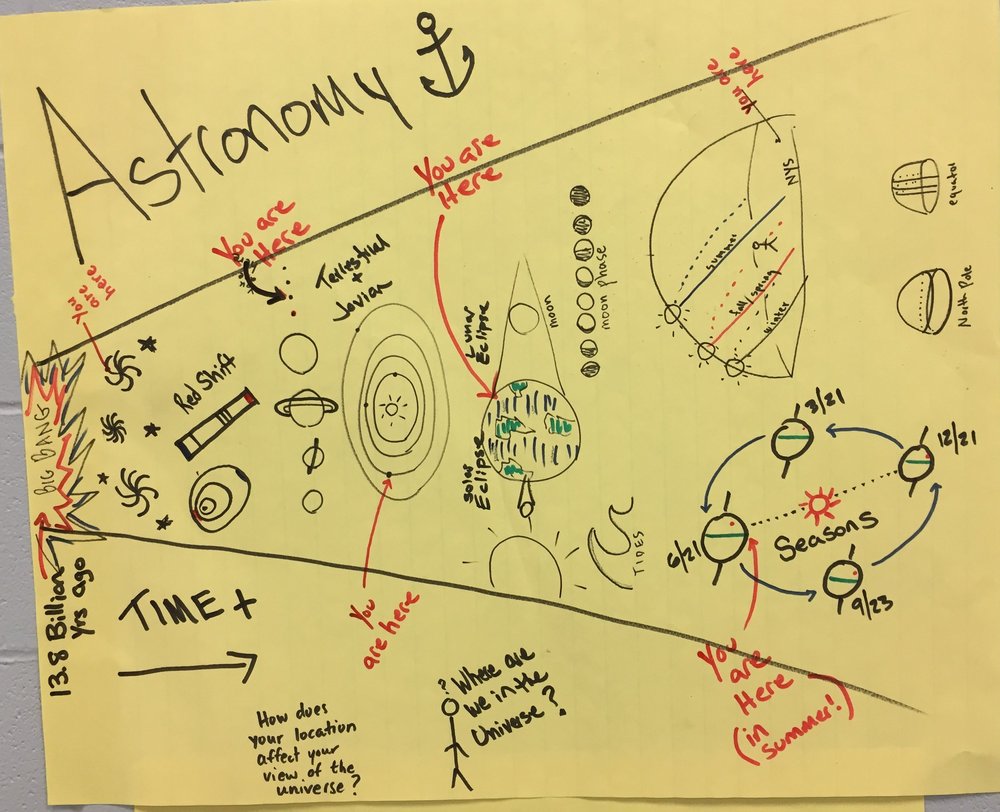 Astronomy
You are
here
You are
Here
You are
Here
You are
here
BIG BANG
13.8 Billion
yrs ago
Red Shift
Terrestrial
+
Jovian
You
are here
Lunar
Eclipse
Solar
Eclipse
moon
moon phase
TIDES
NYS
summer
fall/spring
winter
equator
North Pole
3/21
12/21
6/21
9/23
Seasons
You
are
Here
(in
summer!)
TIME +
How does
your location
affect your
view of the
universe?
?
Where are
we in the
Universe?